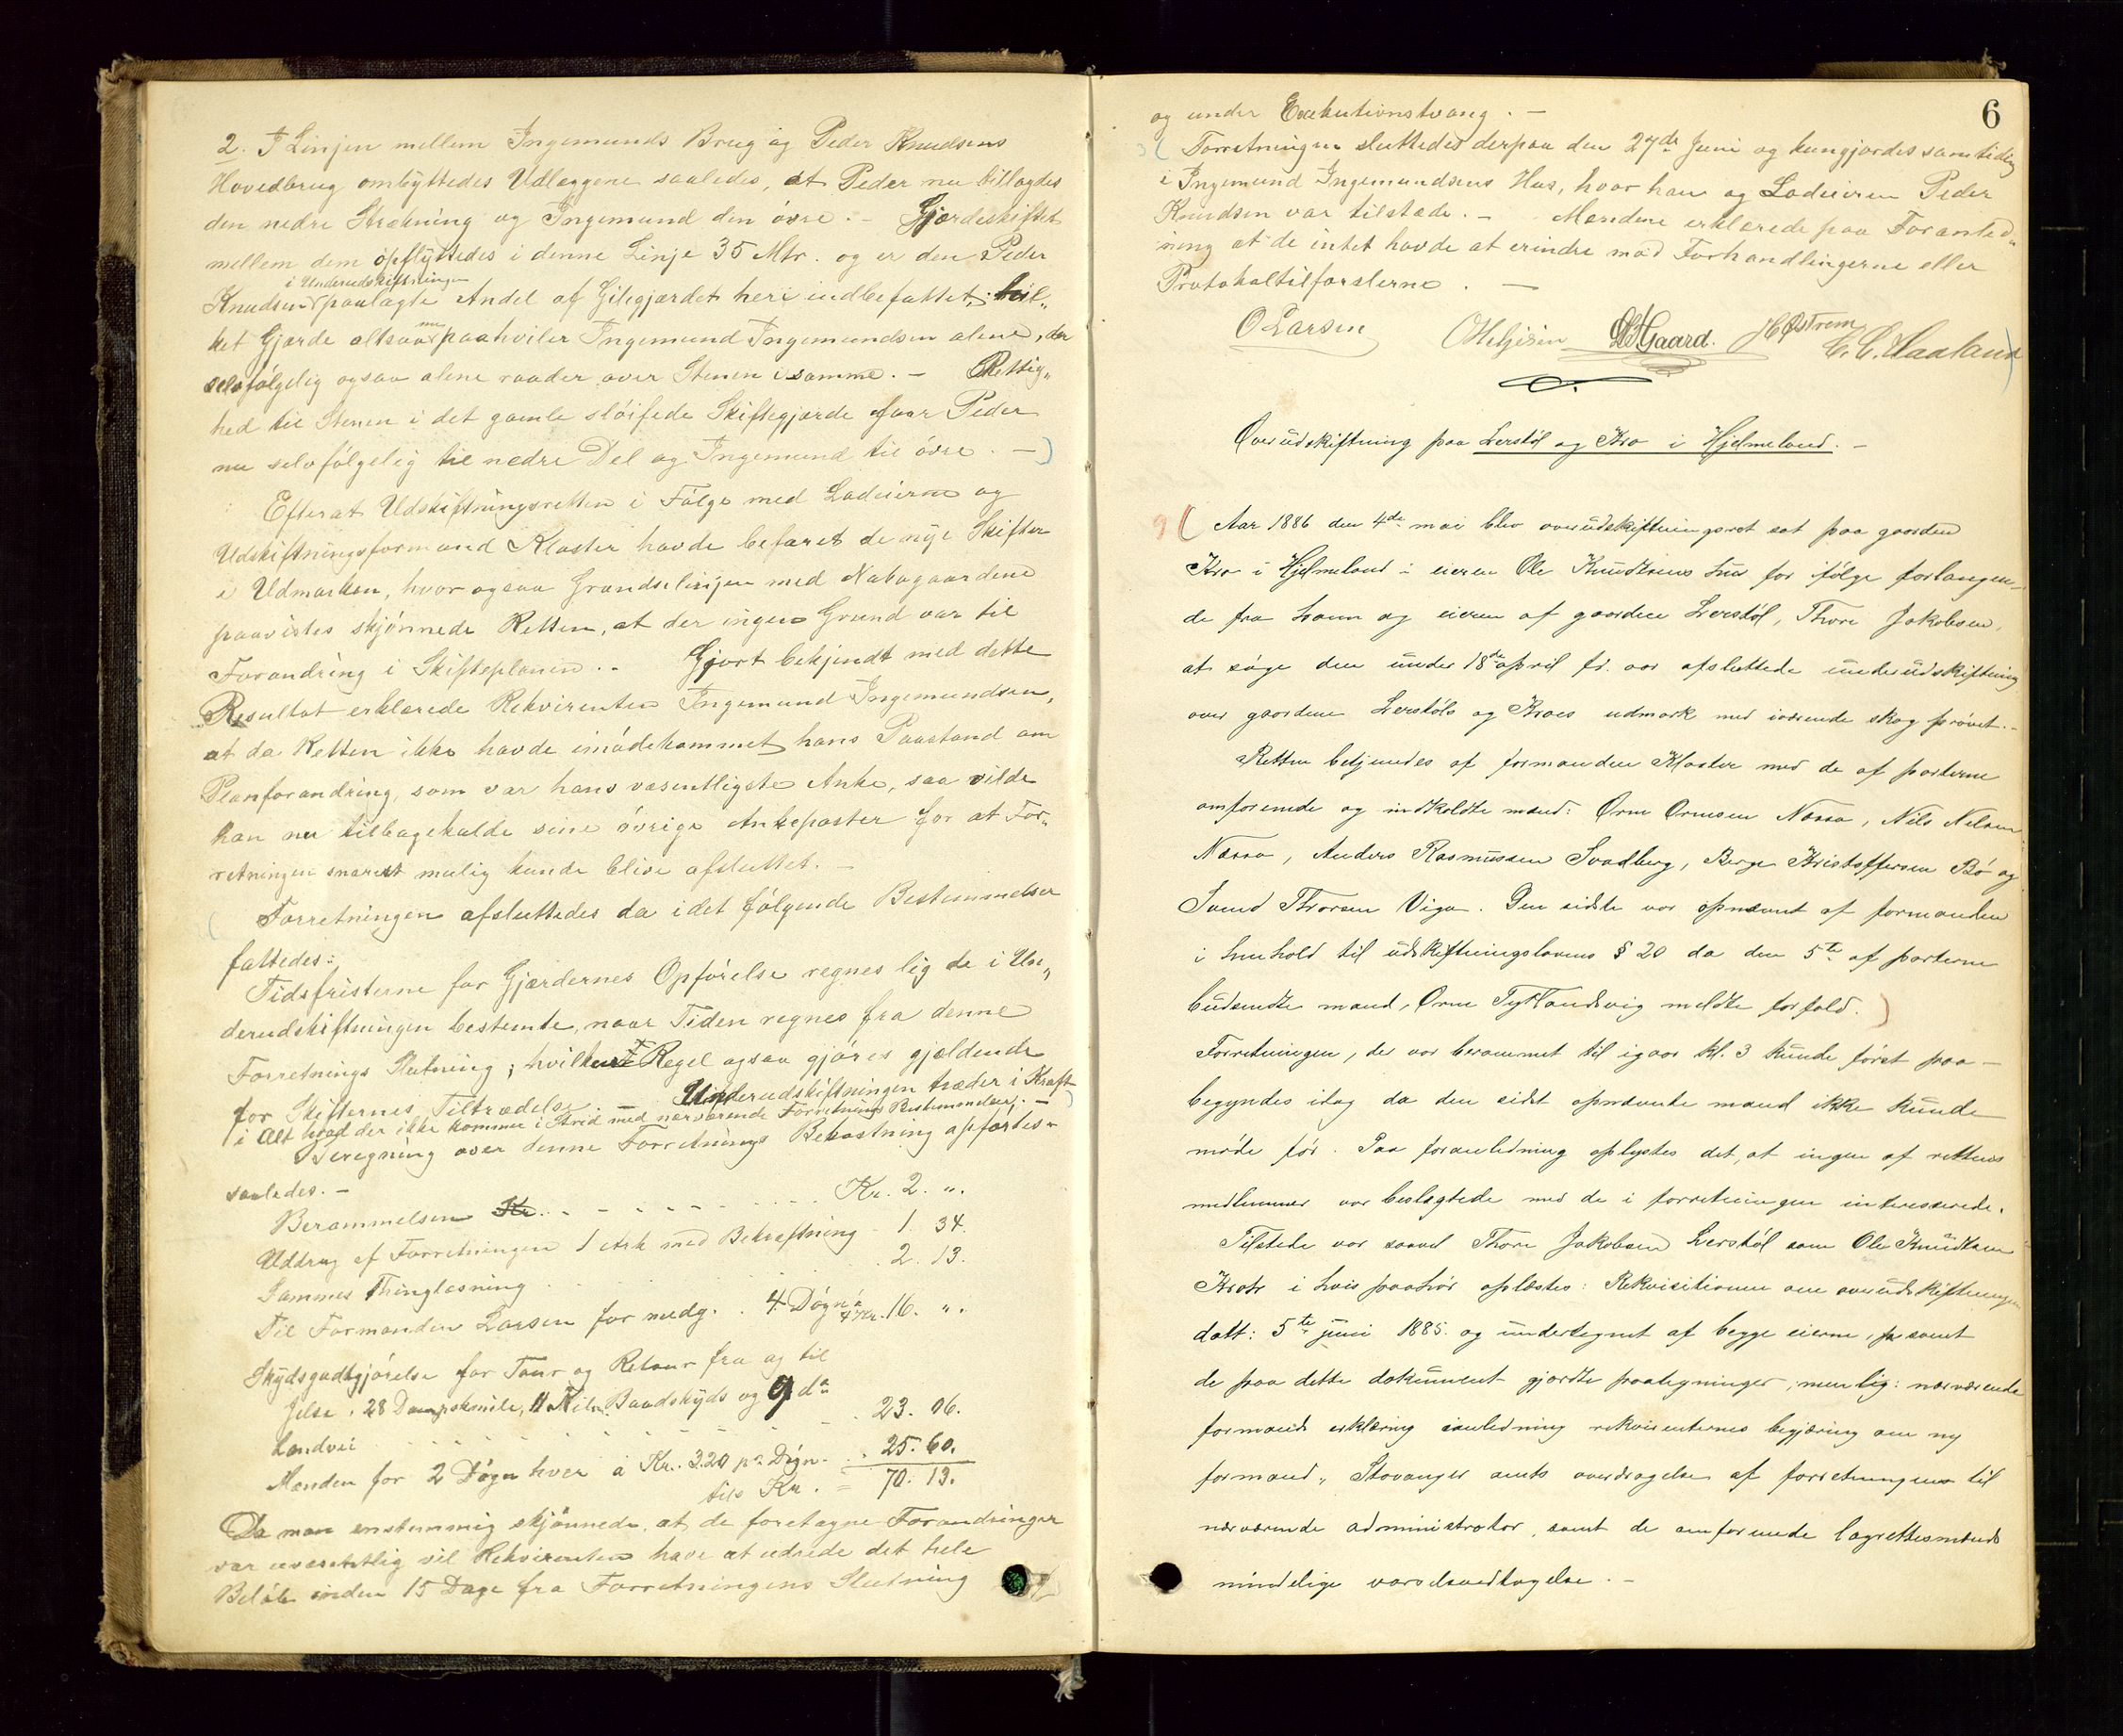 2. I Linjen mellem Ingemunds Brug og Peder Knudsens
Hovedbrug ombyttedes Udlæggene saaledes, at Peder nu tillagdes
den nedre Strækning og Ingemund den övre. - Gjærdeskiftet
mellem dem opflyttedes i denne Linje 35 Mtr. og er den Peder
i Underudskiftningen
Knudsen paalagte Andel af Gilegjærdet heri indbefattet; hvil„
ket Gjærde altsaa nu paahviler Ingemund Ingemundsen alene, der
selvfølgelig ogsaa alene raader over Stenen i samme. - Rettig„
hed til Stenen i det gamle slöifede Skiftegjærde faar Peder
nu selvfölgelig til nedre Del og Ingemund til övre. -
Efterat Udskiftningsretten i Fölge med Lodeierne og
Udskiftningsformand Kloster havde befaret de nye Skifter
i Udmarken, hvor ogsaa Grændselinjen med Nabogaardene
paavistes skjönnede Retten, at der ingen Grund var til
Forandring i Skifteplanen. - Gjort bekjendt med dette
Resultat erklærede Rekvirenten Ingemund Ingemundsen,
at da Retten ikke havde imödekommet hans Paastand om
Planforandring, som var hans væsentligste Anke, saa vilde
han nu tilbagekalde sine övrige Ankeposter for at For„
retningen snarest mulig kunde blive afsluttet. -
Forretningen afsluttedes da idet fölgende Bestemmelser
fattedes:
Tidsfristerne for Gjærdernes Opförelse regnes lig de i Un„
derudskiftningen bestemte, naar Tiden regnes fra denne
Forretnings Slutning; hvilken Regel ogsaa gjöres gjældende
for Skifternes Tiltrædelse. Underudskiftningen træder i Kraft
i Alt hvad der ikke kommer i Strid med nærværende Forretnings Bestemmelser. -
Beregning over denne Forretnings Bekostning opförtes
saaledes. -
Berammelsen Kr. . . . Kr. 2. „.
Uddrag af Forretningen 1 Ark med Bekræftning - 1. 34.
Sammes Thinglæsning . . . 2. 13.
Til Formanden Larsen for medg. . 4 Dögn á 4 Kr. 16. „.
Skydsgodtgjörelse for Tour og Retour fra og til
Jelse, 28 Dampskmile, 11 Mile Baadskyds og 9 do
Landvei . . . 23. 06.
Mænden for 2 Dögn hver á Kr. 3.20 pr Dögn . . 25. 60.
tils Kr. = 70. 13.
Da man enstemmig skjönnede, at de foretagne Forandringer
var uvæsentlig vil Rekvirenten have at udrede det hele
Belöb inden 15 Dage fra Forretningens Slutning
6
og under Exekutionstvang. -
Forretningen sluttedes derpaa den 27de Juni og kungjordes samtidig
i Ingemund Ingemundsens Hus, hvor han og Lodeieren Peder
Knudsen var tilstæde. - Mændene erklærede paa Foranled„
ning at de intet havde at erindre mod Forhandlingerne eller
Protokoltilförslerne. -
O Larsen O Helgisen Gaard. H Østrem C. C. Haaland
Overudskiftning paa Lerstöl og Kro i Hjelmeland. -
Aar 1886 den 4de mai blev overudskiftningsret sat paa gaarden
Kro i Hjelmeland i eieren Ole Knudsens hus for ifølge forlangen-
de fra ham og eieren af gaarden Lerstöl, Thore Jakobsen,
at söge den under 18de april f. aar afsluttede underudskiftning
over gaardene Lerstöls og Kroes udmark med iværende skog prövet. -
Retten betjentes af formanden Kloster med de af parterne
omforenede og indkaldte mænd: Orm Ormsen Næssa, Nils Nilsen
Næssa, Anders Rasmussen Svadberg, Berge Kristoffersen Bö og
Svend Thorsen Viga. Den sidste var opnævnt af formanden
i henhold til udskiftningslovens § 20 da den 5te af parterne
budsendte mand, Orm Tytlandsvig meldte forfald.
Forretningen, der var berammet til igaar kl. 3 kunde först paa-
begyndes idag da den sidst opnævnte mand ikke kunde
möde för. Paa foranledning oplystes det, at ingen af rettens
medlemmer var beslægtede med de i forretningen interesserede.
Tilstede var saavel Thore Jakobsen Lerstöl som Ole Knudsen
Kroe i hvis paahör oplæstes: Rekvisitionen om overudskiftningen
datt: 5te juni 1885. og undertegnet af begge eierne, samt
de paa dette dokument gjordte paategninger, nemlig: nærværende
formands erklæring ianledning rekvirenternes begjæring om ny
formand, Stavanger amts overdragelse af forretningen til
nærværende administrator, samt de omforenede lagrettesmænds
mindelige varselsvedtagelse. -